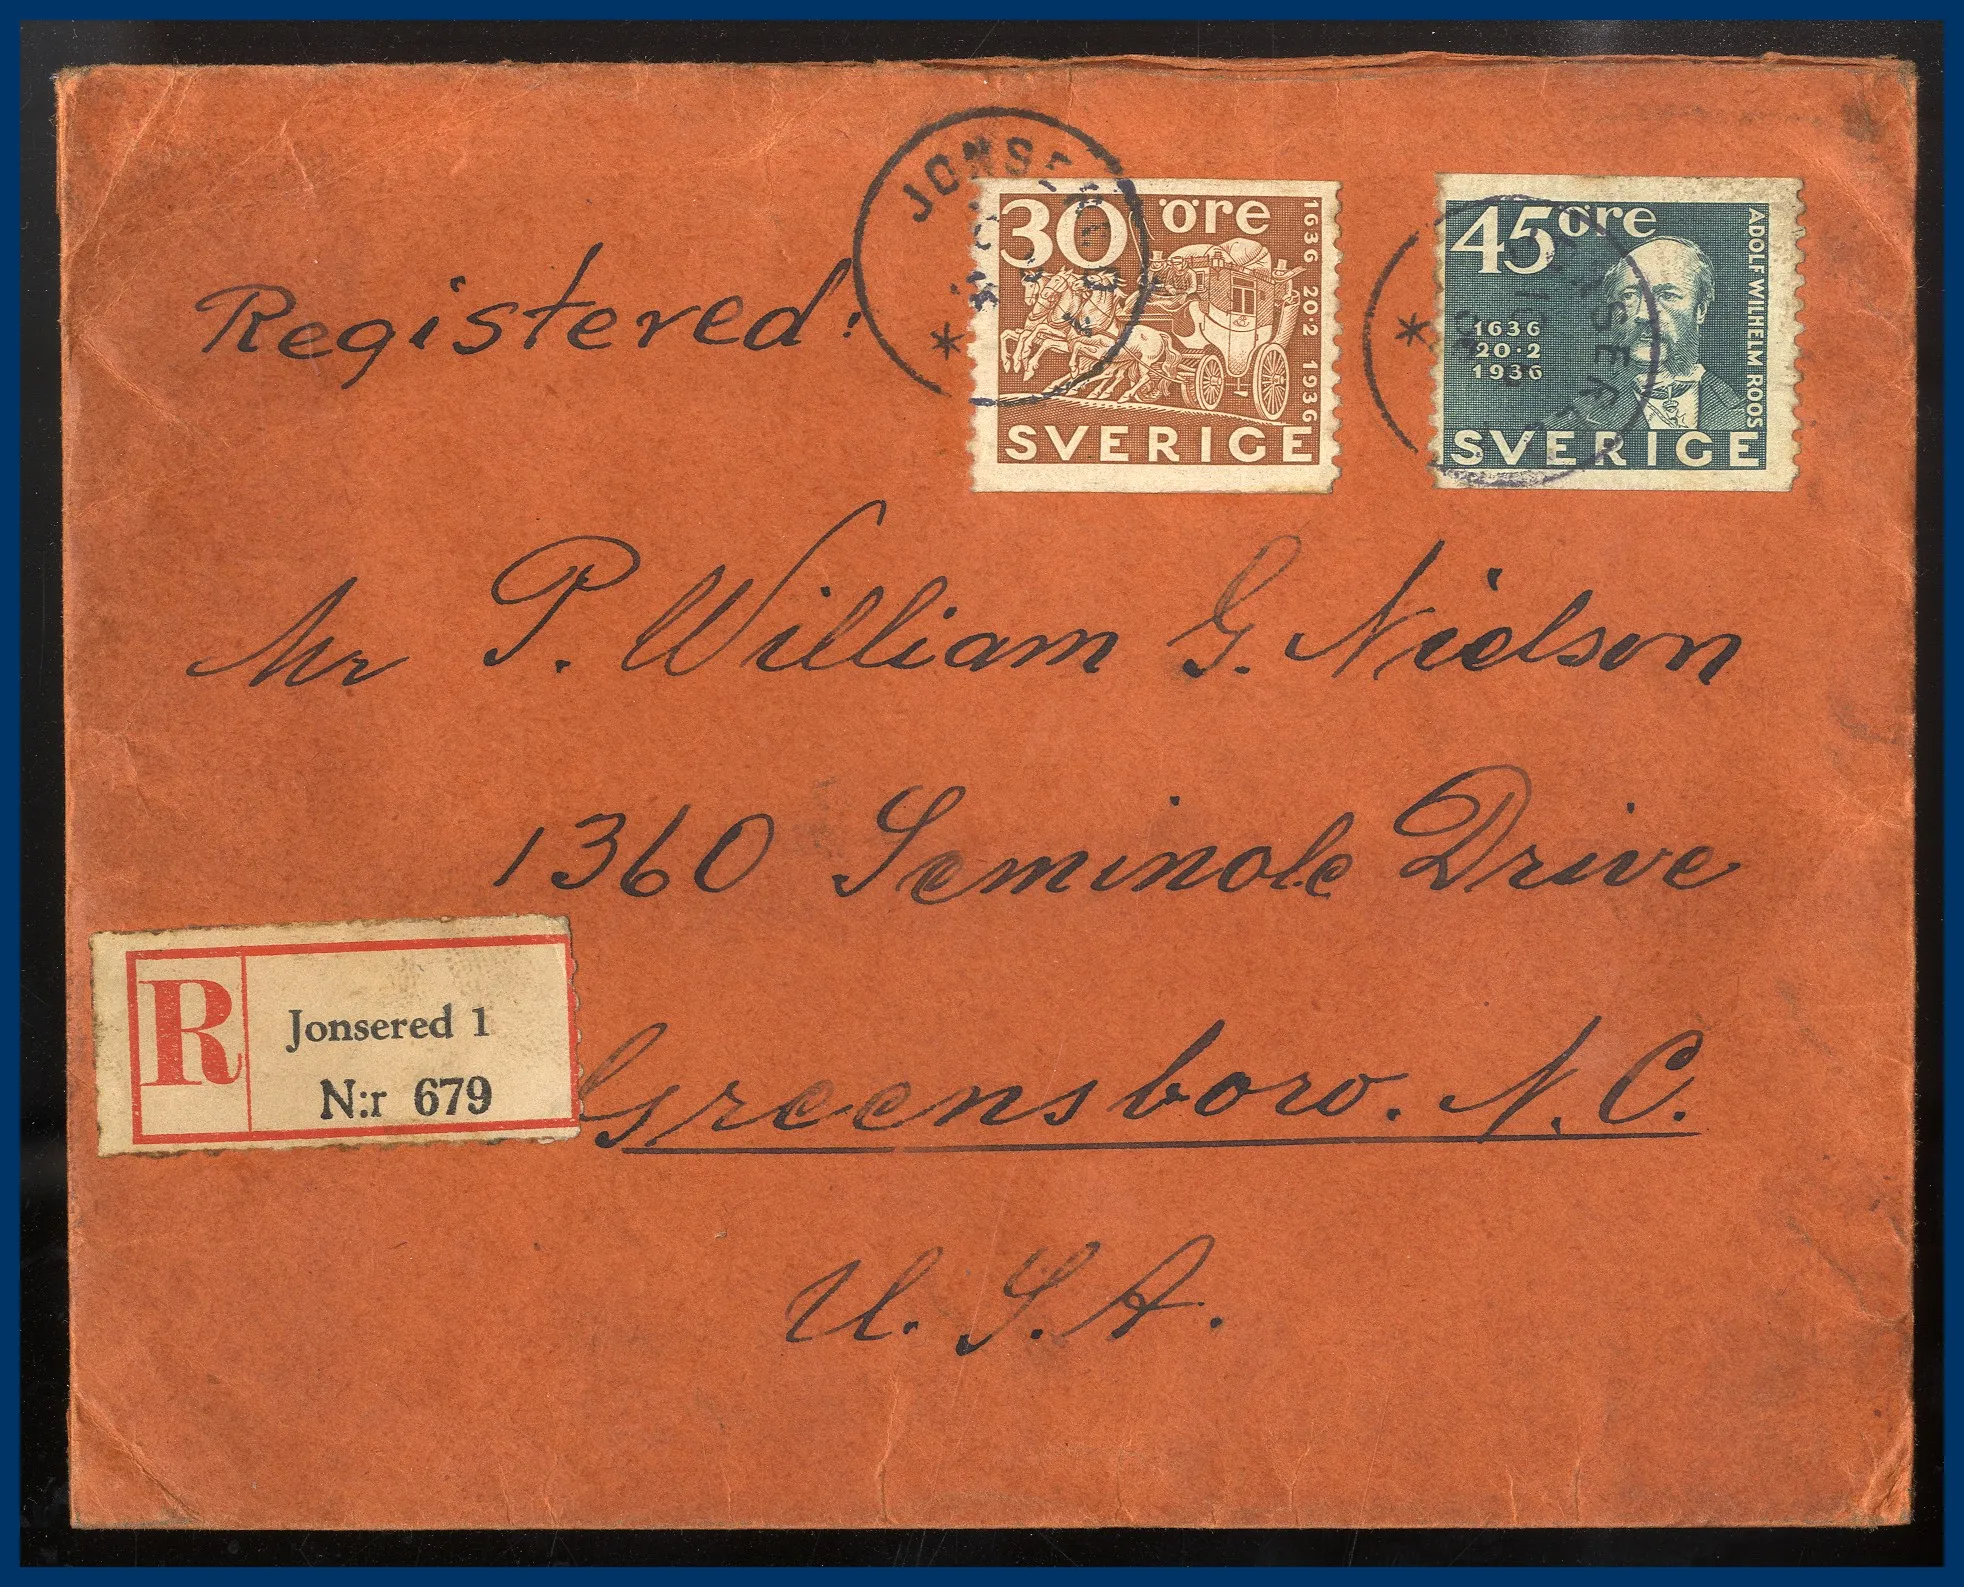 JONSERED
30 öre
1636 20·2 1936
SVERIGE
45 öre
ADOLF WILHELM ROOS
1636
20·2
1936
SVERIGE
JONSERED
Registered:
Mr P. William G. Nielson
1360 Seminole Drive
R
Jonsered 1
N:r 679
Greensboro. N.C.
U.S.A.